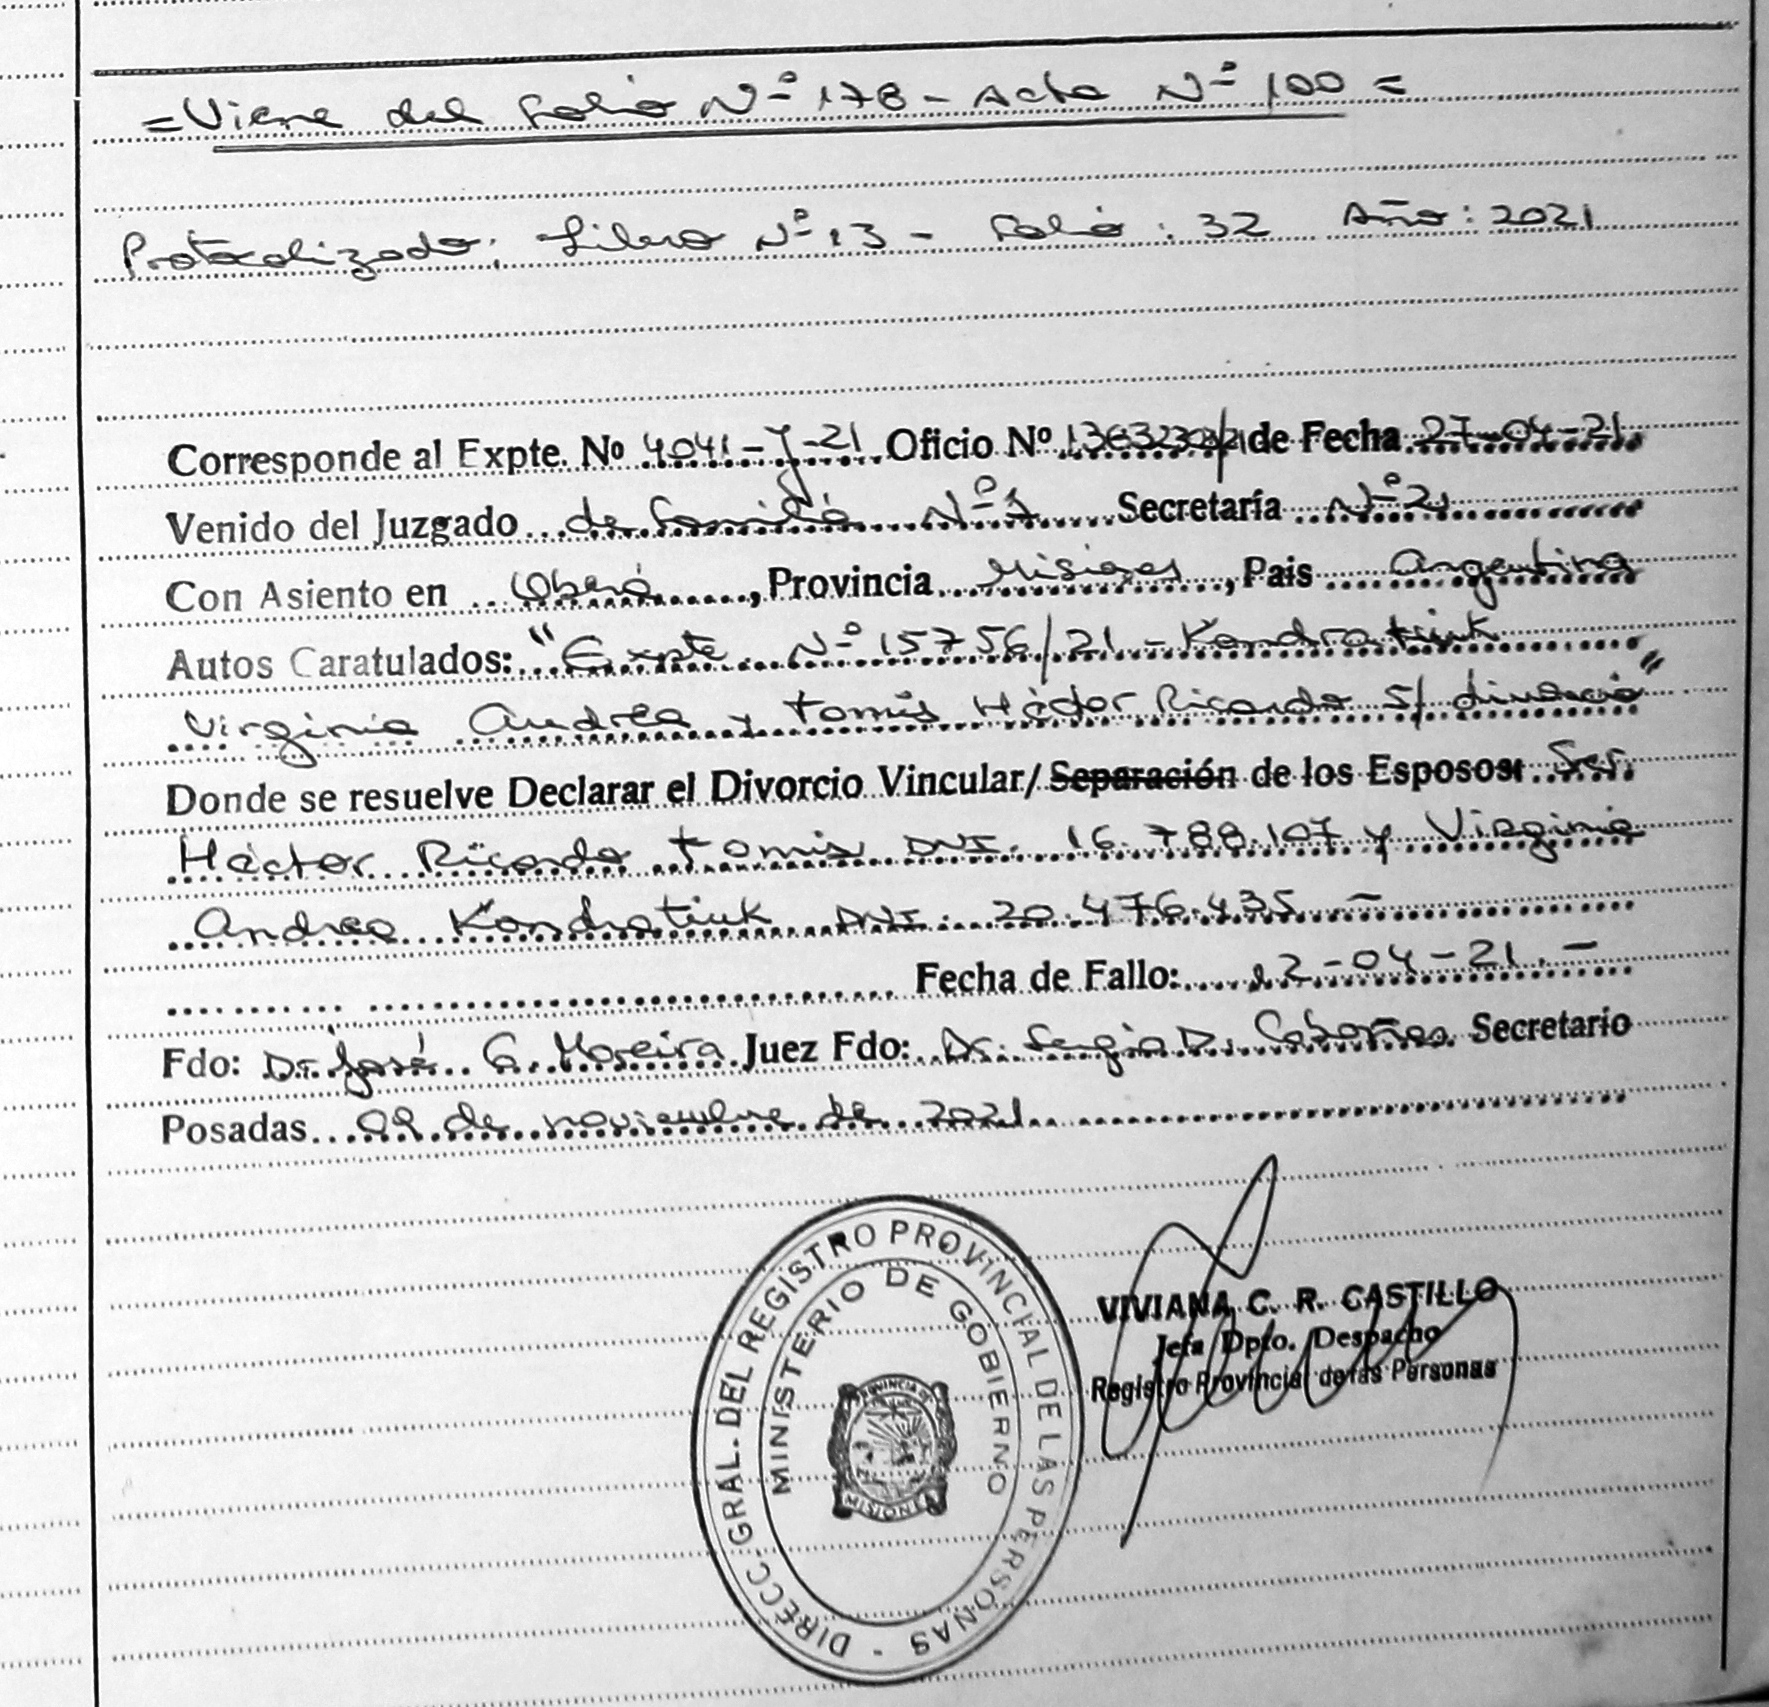 = Viene del Folio Nº 178 - Acta Nº 100 =
Protocolizado: Libro Nº 13 - Folio: 32 Año: 2021
Corresponde al Expte. Nº 4041-Y-21 Oficio Nº de Fecha 27-04-21
Venido del Juzgado de Familia Nº 1 Secretaría Nº 2
Con Asiento en Oberá, Provincia Misiones, Pais Argentina
Autos Caratulados: "Expte. Nº 15756/21 - Kondratiuk
Virginia Andrea y Tomis Héctor Ricardo S/ divorcio"
Donde se resuelve Declarar el Divorcio Vincular/Separación de los Esposos: Sres.
Héctor Ricardo Tomis DNI. 16.788.107 y Virginia
Andrea Kondratiuk DNI. 20.476.435 -
Fecha de Fallo: 12-04-21. -
Fdo: Dr. José G. Moreira Juez Fdo: Dr. Sergio D. Secretario
Posadas 09 de noviembre de 2021
DIRECC. GRAL. DEL REGISTRO PROVINCIAL DE LAS PERSONAS -
MINISTERIO DE GOBIERNO
PROVINCIA DE
MISIONES
VIVIANA C. R. CASTILLO
Jefa Dpto. Despacho
Registro Provincial de las Personas